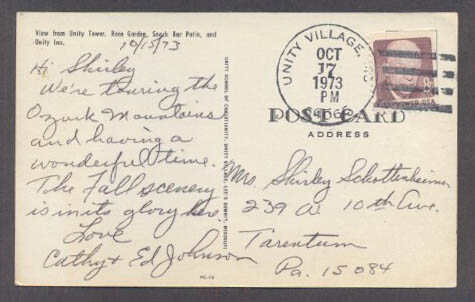 View from Unity Tower, Rose Garden, Snack Bar Patio, and
Unity Inn.
10/15/73
Hi Shirley
We're touring the
Ozark Mountains
and having a
wonderful time.
The Fall scenery
is in its glory here.
Love
Cathy + Ed Johnson
UNITY SCHOOL OF CHRISTIANITY, UNITY VILLAGE, LEE'S SUMMIT, MISSOURI
PC-14
UNITY VILLAGE, MO
OCT
17
1973
PM
POST CARD
ADDRESS
Mrs. Shirley Schottenheimer
239 W. 10th Ave.
Tarentum
Pa. 15084